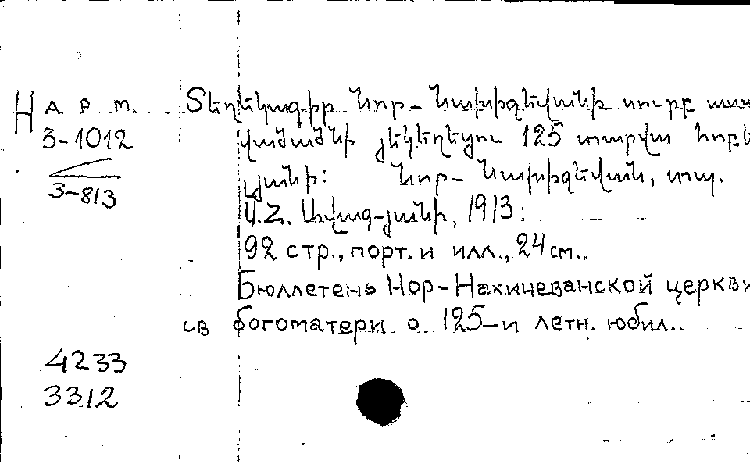 Н арм. Տեղեկագիր Նոր-Նախիջեվանի սուրբ
3-1012 վածածնի յեկեղեցու 125 տարվա հոբե
3-813 լյանի: Նոր-Նախիջեվան, տպ.
Ս.Հ. Ավագ-յանի, 1913:
92 стр., порт. и илл., 24 см..
Бюллетень Нор-Нахичеванской церкви
св богоматери о 125-и летн. юбил..
4233
3312